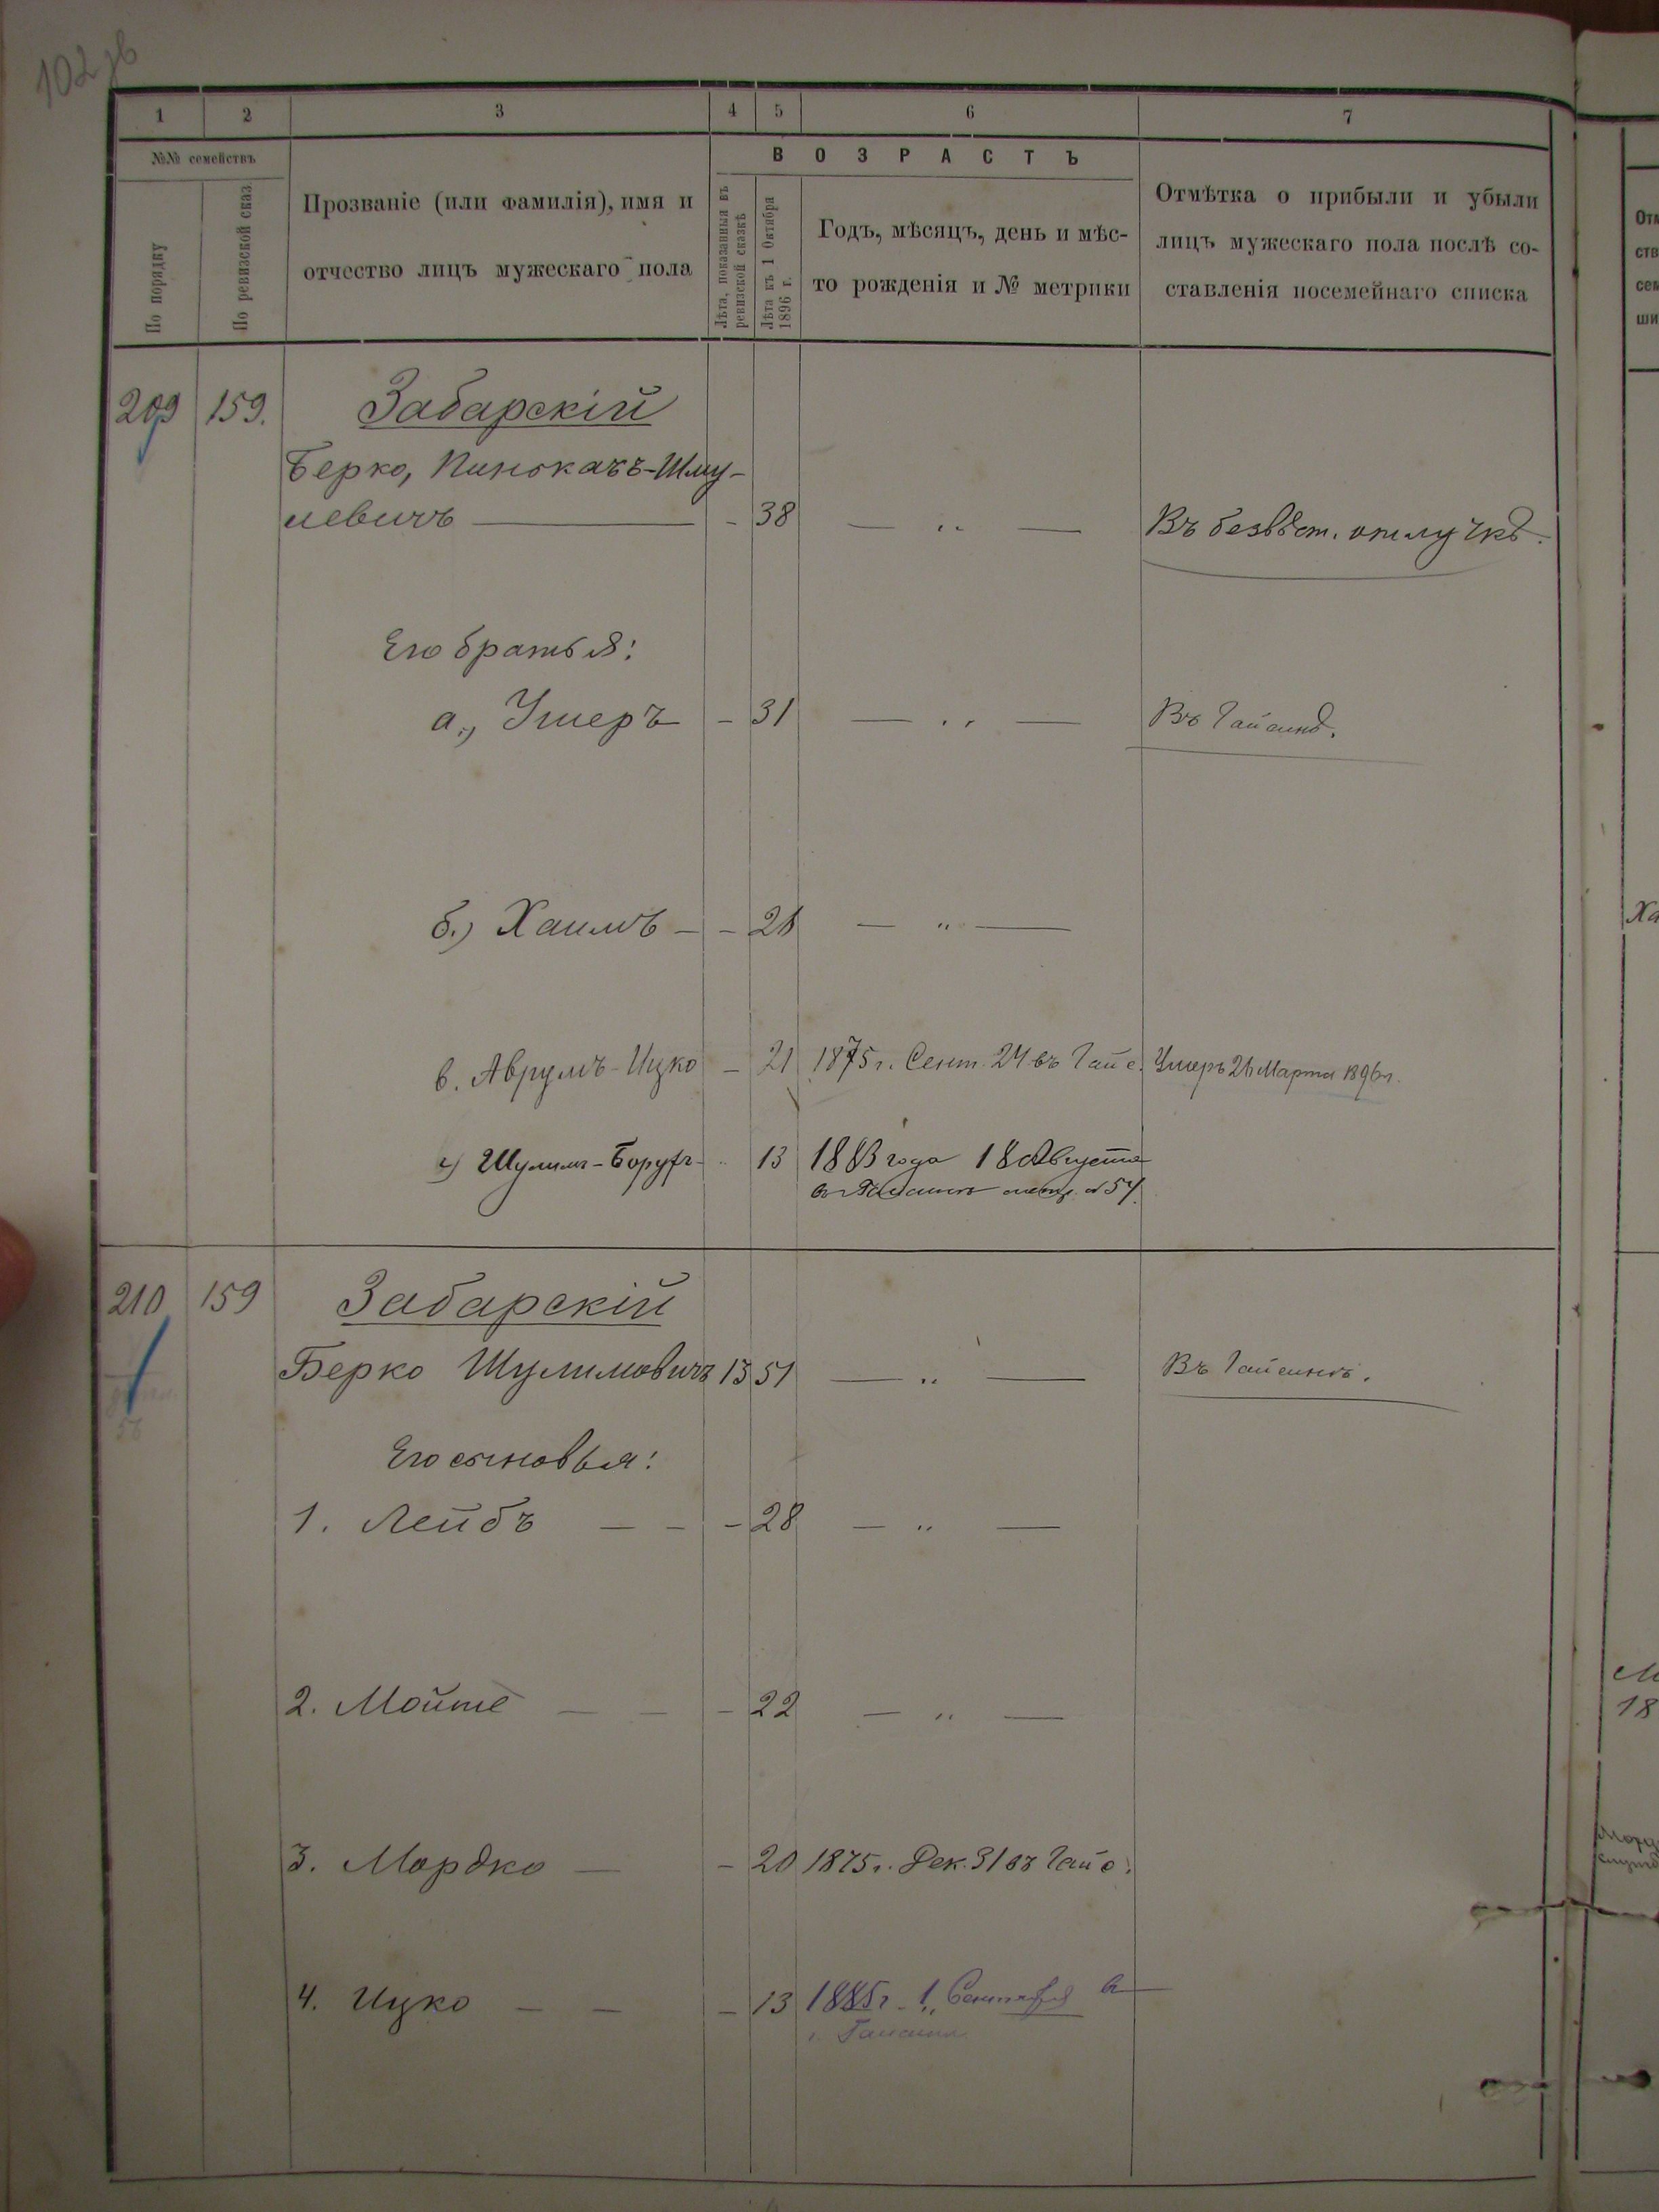 102 зв
1 2 3 4 5 6 7
№№ семействъ
По порядку
По ревизской сказ.
Прозваніе (или фамилія), имя и
отчество лицъ мужескаго пола
ВОЗРАСТЪ
Лѣта, показанныя въ
ревизской сказкѣ
Лѣта къ 1 Октября
1896 г.
Годъ, мѣсяцъ, день и мѣс-
то рожденія и № метрики
Отмѣтка о прибыли и убыли
лицъ мужескаго пола послѣ со-
ставленія посемейнаго списка
209 159. Забарскій
Берко, Пинькасъ-Шму-
левичъ — - 38 — „ — Въ безвѣст. отлучкѣ.
Его братья:
а., Ушеръ - 31 — „ — Въ Гайсинѣ.
б.) Хаимъ - - 28 — „ —
в. Аврумъ-Ицко - 21 1875 г. Сент. 24 въ Гайс. Умеръ 26 Марта 1896 г.
г) Шулимъ-Борухъ - „ 13 1883 года 18 Августа
въ Гайсинѣ метр. № 54.
210 159 Забарскій
Берко Шулимовичъ 13 51 — „ — Въ Гайсинѣ.
Его сыновья:
1. Лейбъ — - - 28 — „ —
2. Мойше — — - 22 — „ —
3. Мордко — - 20 1875 г. Дек. 31 въ Гайс.
4. Ицко — — - 13 1885 г. 1„ Сентября в
г. Гайсинѣ